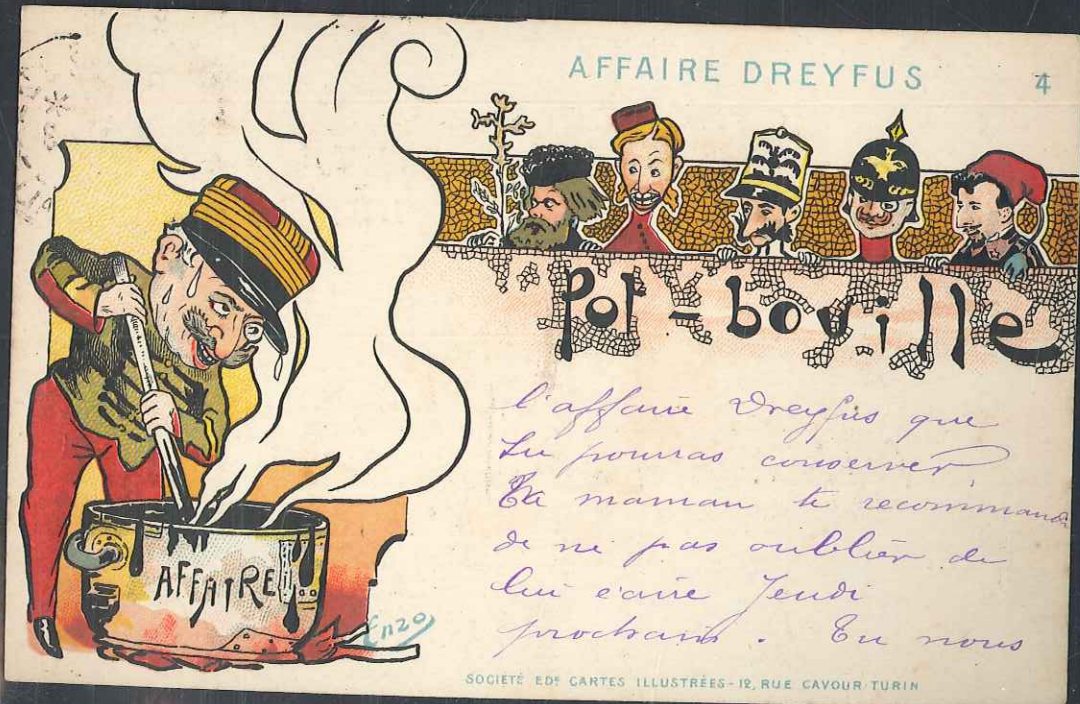 AFFAIRE DREYFUS
4
Pot-bouille
AFFAIRE
Enzo
l'affaire Dreyfus que
tu pourras conserver
Ta maman te recommande
de ne pas oublier de
lui écrire Jeudi
prochain. Tu nous
SOCIÉTÉ EDᵉ CARTES ILLUSTRÉES - 12, RUE CAVOUR-TURIN